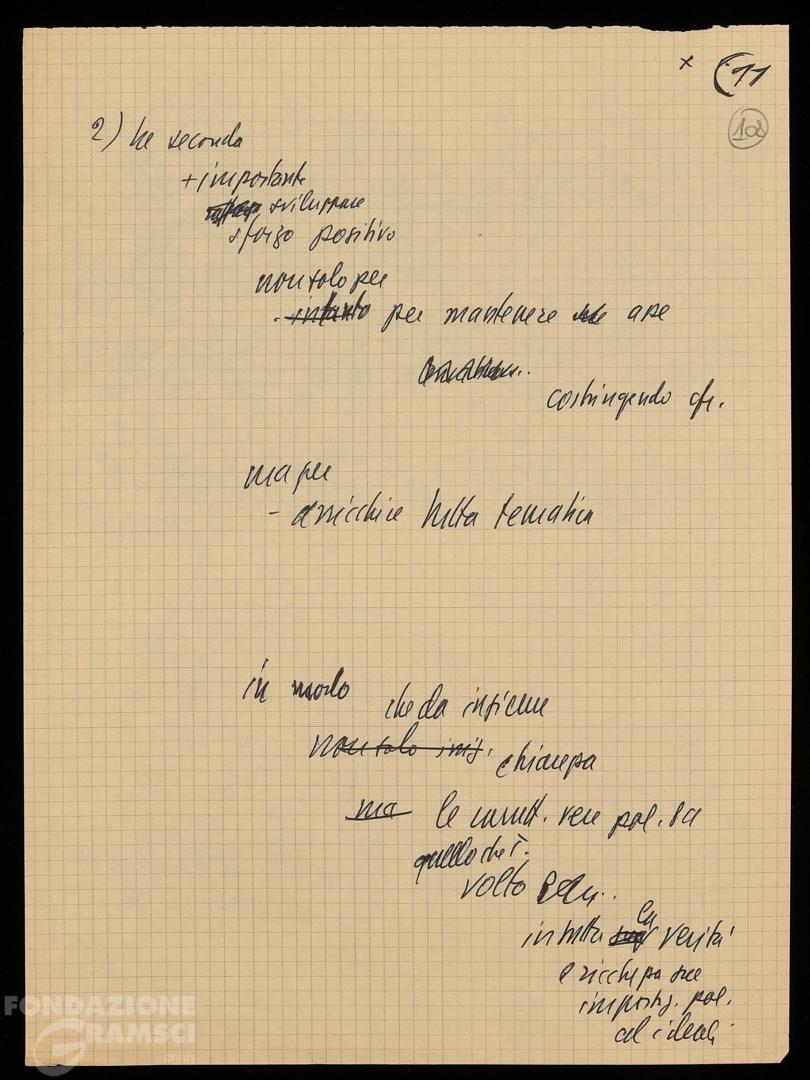 x (11
108
2) La seconda
+ importante
sviluppare
sforzo positivo
non solo per
- intanto per mantenere ape
costringendo
ma per
- arricchire tutta tematica
in modo che da insieme
non solo ins. chiarezza
ma le caratt. vere pol.
quello che è.
volto
in tutta la verità
e ricchezza sue
impostaz. pol.
ed ideali
FONDAZIONE
GRAMSCI
onlus